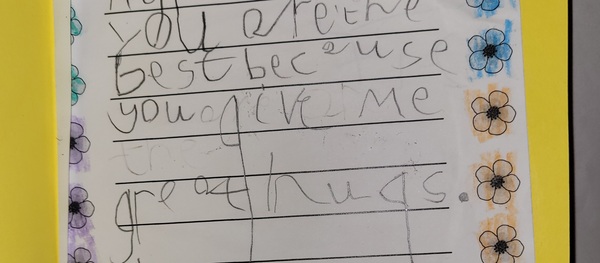 you are the
best because
you give me
great hugs.